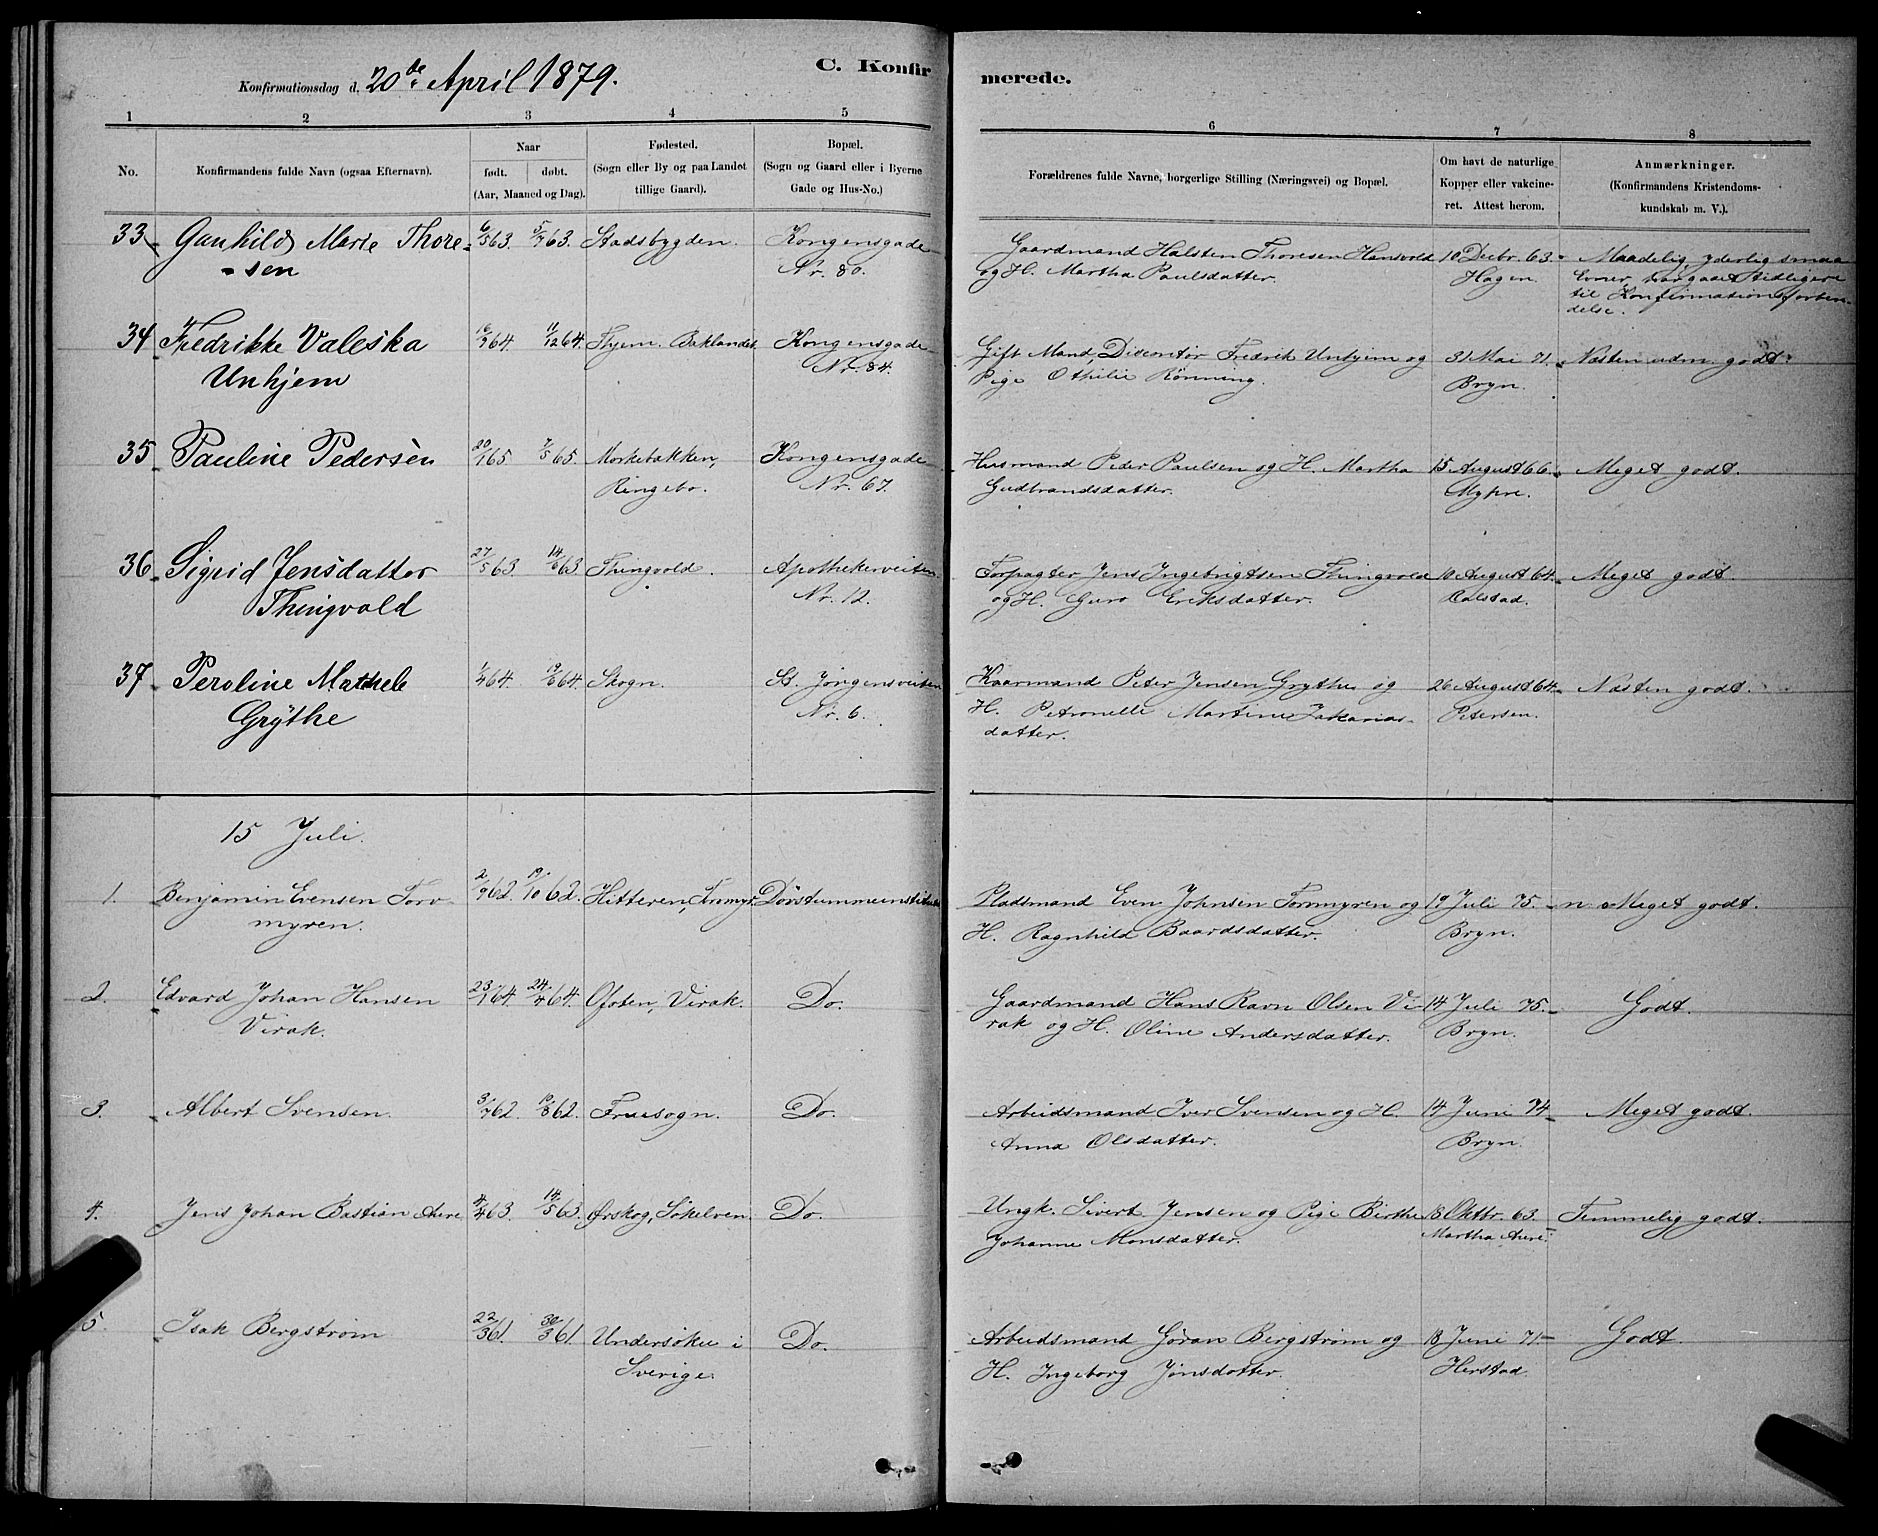 Konfirmationsdag d. 20de April 1879.
C. Konfir
merede.
1 2 3 4 5 6 7 8
No.
Konfirmandens fulde Navn (ogsaa Efternavn).
Naar
født. døbt.
(Aar, Maaned og Dag).
Fødested.
(Sogn eller By og paa Landet
tillige Gaard).
Bopæl.
(Sogn og Gaard eller i Byerne
Gade og Hus-No.)
Forældrenes fulde Navne, borgerlige Stilling (Næringsvei) og Bopæl.
Om havt de naturlige
Kopper eller vakcine-
ret. Attest herom.
Anmærkninger.
(Konfirmandens Kristendoms-
kundskab m. V.).
33 Gunhild Marie Thore- 6/5 63. 5/7 63. Stadsbygden. Kongensgade Gaardmand Halsten Thoresen Hansvold 10 Decbr. 63. Maadelig, yderlig smaa
-sen Nr. 80. og H. Martha Paulsdatter. Hagen. Evner, har gaaet tidligere
til Konfirmationsforbere-
delse.
34 Fredrikke Valeska 16/9 64. 11/12 64. Thjem. Baklandet Kongensgade Gift Mand, Discontør Fredrik Unhjem og 31 Mai 71. Næsten udm. godt.
Unhjem Nr. 84. Pige Othilie Rönning. Bryn.
35 Pauline Pedersen 20/1 65. 7/5 65. Morkebakken, Kongensgade Husmand Peder Paulsen og H. Martha 15 August 66. Meget godt.
Ringebo. Nr. 67. Gudbrandsdatter. Myhre.
36 Sigrid Jensdatter 27/5 63. 14/6 63. Thingvold. Apothekerveiten Forpagter Jens Ingebrigtsen Thingvold 10 August 64. Meget godt.
Thingvold Nr. 12. og H. Guro Eriksdatter. Calstad.
37 Peroline Mathele 1/4 64. 19/6 64. Skogn. St. Jörgensveiten Kaarmand Peter Jensen Grythe og 26 August 64. Næsten godt.
Grÿthe Nr. 6. H. Petronelle Martine Zakarias- Petersen.
datter.
15 Juli.
1. Benjamin Evensen Torv- 2/9 62. 19/10 62. Hitteren, Tormyr. Dövstummeinstitut Pladsmand Even Johnsen Tormyren og 19 Juli 75. n. Meget godt.
myren. H. Ragnhild Baardsdatter. Bryn.
2. Edvard Johan Hansen 23/1 64. 24/4 64. Ofoten, Virak. Do. Gaardmand Hans Ravn Olsen Vi- 14 Juli 75. Godt.
Virak. rak og H. Oline Andersdatter. Bryn.
3. Albert Svensen. 3/7 62. 10/8 62. Fruesogn. Do. Arbeidsmand Iver Svensen og H. 14 Juni 74 Meget godt.
Anna Olsdatter. Bryn.
4. Jens Johan Bastian Aure 4/4 63. 14/5 63. Ørskog, Sökelven. Do. Ungk. Sivert Jensen og Pige Birthe 18 Oktbr. 63. Temmelig godt.
Johanne Monsdatter. Martha Aure.
5. Isak Bergström 22/3 61. 30/3 61. Undersöker i Do. Arbeidsmand Göran Bergström og 18 Juni 71 Godt.
Sverige. H. Ingeborg Jönsdatter. Herstad.